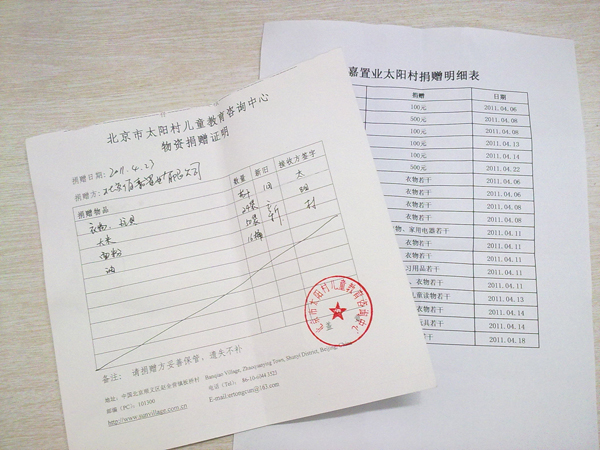 北京市太阳村儿童教育咨询中心
物资捐赠证明
捐赠日期：2011.4.23
捐赠方：
捐赠物品 数量 新旧 接收方签字
衣物、玩具 旧 太
大米 阳
面粉 新 村
油
北京市太阳村儿童教育咨询中心
备注： 请捐赠方妥善保管，遗失不补
地址：中国北京顺义区赵全营镇板桥村 Banqiao Village, Zhaoquanying Town, Shunyi District, Beijing China
邮编（PC）：101300 电话（Tel）： 86-10-6044 3121
http://www.sunvillage.com.cn E-mail:ertongcun@163.com
嘉置业太阳村捐赠明细表
捐赠 日期
100元 2011.04.06
500元 2011.04.08
500元 2011.04.08
100元 2011.04.13
100元 2011.04.14
500元 2011.04.22
衣物若干 2011.04.06
衣物若干 2011.04.06
衣物若干 2011.04.08
物、家用电器若干 2011.04.11
衣物若干 2011.04.11
衣物若干 2011.04.11
习用品若干 2011.04.11
、衣物若干 2011.04.11
儿童读物若干 2011.04.13
若干 2011.04.14
玩具若干 2011.04.14
若干 2011.04.18